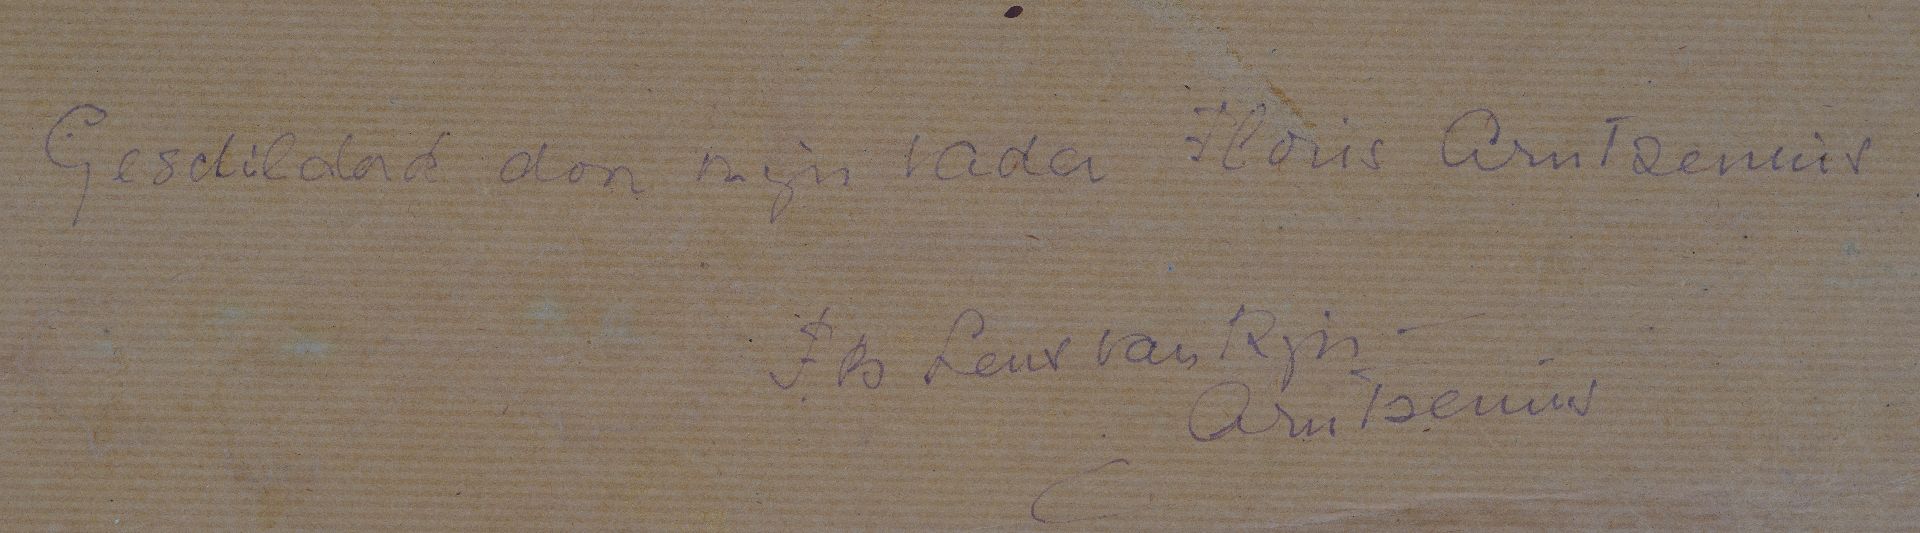 Geschilderd door mijn vader Floris Arntzenius
Lens van Rijn -
Arntzenius